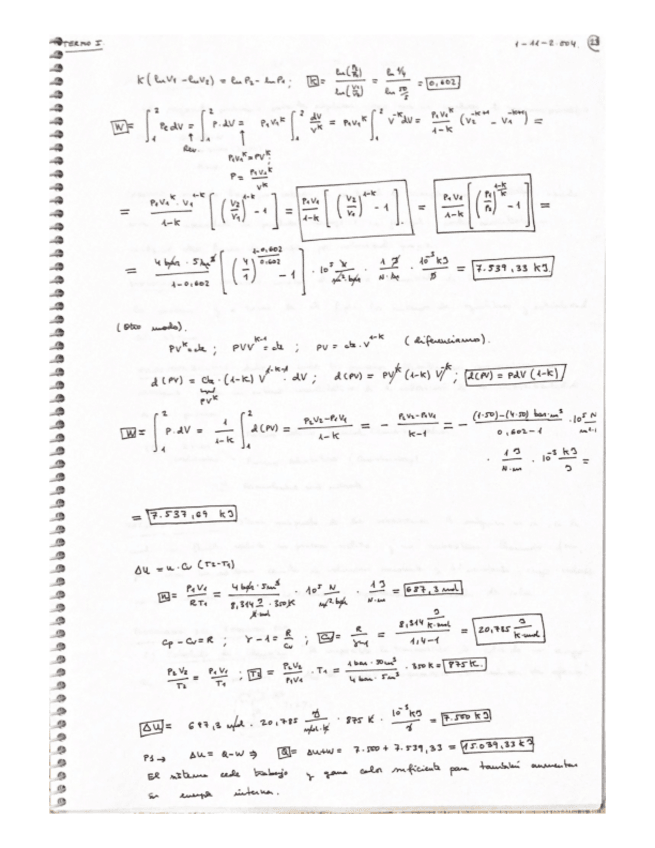 TERMO I. 1-11-2.004. 23
K(lnV₁ - lnV₂) = lnP₂ - lnP₁; K = ln(P₂/P₁) / ln(V₁/V₂) = = 0,602
W = ∫₁² Pₑ dV = ∫₁² P·dV = P₁V₁ᴷ ∫₁² dV/Vᴷ = P₁V₁ᴷ ∫₁² V⁻ᴷ dV = P₁V₁ᴷ/(1-K) (V₂⁻ᴷ⁺¹ - V₁⁻ᴷ⁺¹) =
Rev.
P₁V₁ᴷ = PVᴷ;
P = P₁V₁ᴷ/Vᴷ
= P₁V₁ᴷ·V₁¹⁻ᴷ/(1-K) [(V₂/V₁)¹⁻ᴷ - 1] = P₁V₁/(1-K) [(V₂/V₁)¹⁻ᴷ - 1] = P₁V₁/(1-K) [(P₁/P₂)^((1-K)/K) - 1] =
= 4 bar · 5 m³/(1-0,602) [(4/1)^((1-0,602)/0,602) - 1] · 10⁵ N/(m²·bar) · 1 J/(N·m) · 10⁻³ kJ/J = 7.539,33 kJ.
(Otro modo).
PVᴷ = cte; PVVᴷ⁻¹ = cte; PV = cte·V¹⁻ᴷ (diferenciamos).
d(PV) = cte·(1-K) V¹⁻ᴷ⁻¹·dV; d(PV) = PVᴷ(1-K) V⁻ᴷ; d(PV) = PdV(1-K)
PVᴷ
W = ∫₁² P·dV = 1/(1-K) ∫₁² d(PV) = (P₂V₂-P₁V₁)/(1-K) = - (P₂V₂-P₁V₁)/(K-1) = - ((1·50)-(4·50) bar·m³)/(0,602-1) · 10⁵ N
· 1 J/(N·m) · 10⁻³ kJ/J =
= 7.537,69 kJ
ΔU = n·Cv (T₂-T₁)
n = P₁V₁/(RT₁) = (4 bar · 5 m³)/(8,314 J/(K·mol) · 350 K) · 10⁵ N/(m²·bar) · 1 J/(N·m) = 687,3 mol
Cp - Cv = R; γ - 1 = R/Cv; Cv = R/(γ-1) = (8,314 J/(K·mol))/(1,4-1) = 20,785 J/(K·mol)
P₂V₂/T₂ = P₁V₁/T₁; T₂ = P₂V₂/(P₁V₁) · T₁ = (1 bar · 50 m³)/(4 bar · 5 m³) · 350 K = 875 K.
ΔU = 687,3 mol · 20,785 J/(mol·K) · 875 K · 10⁻³ kJ/J = 7.500 kJ
P1 → ΔU = Q-W ⇒ Q = ΔU+W = 7.500 + 7.539,33 = 15.039,33 kJ
El sistema cede trabajo y gana calor suficiente para también aumentar
su energía interna.